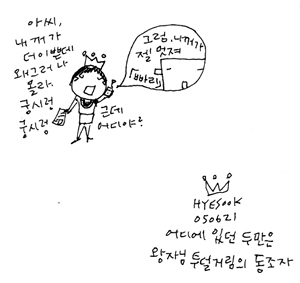 아씨,
내꺼가
더이쁜데
왜그러나
몰라.
궁시렁
궁시렁
그럼, 니꺼가
젤 멋져
「빠리」
근데
어디야?
HYESOOK
050621
어디에 있던 두만은
왕자님 투덜거림의 동조자